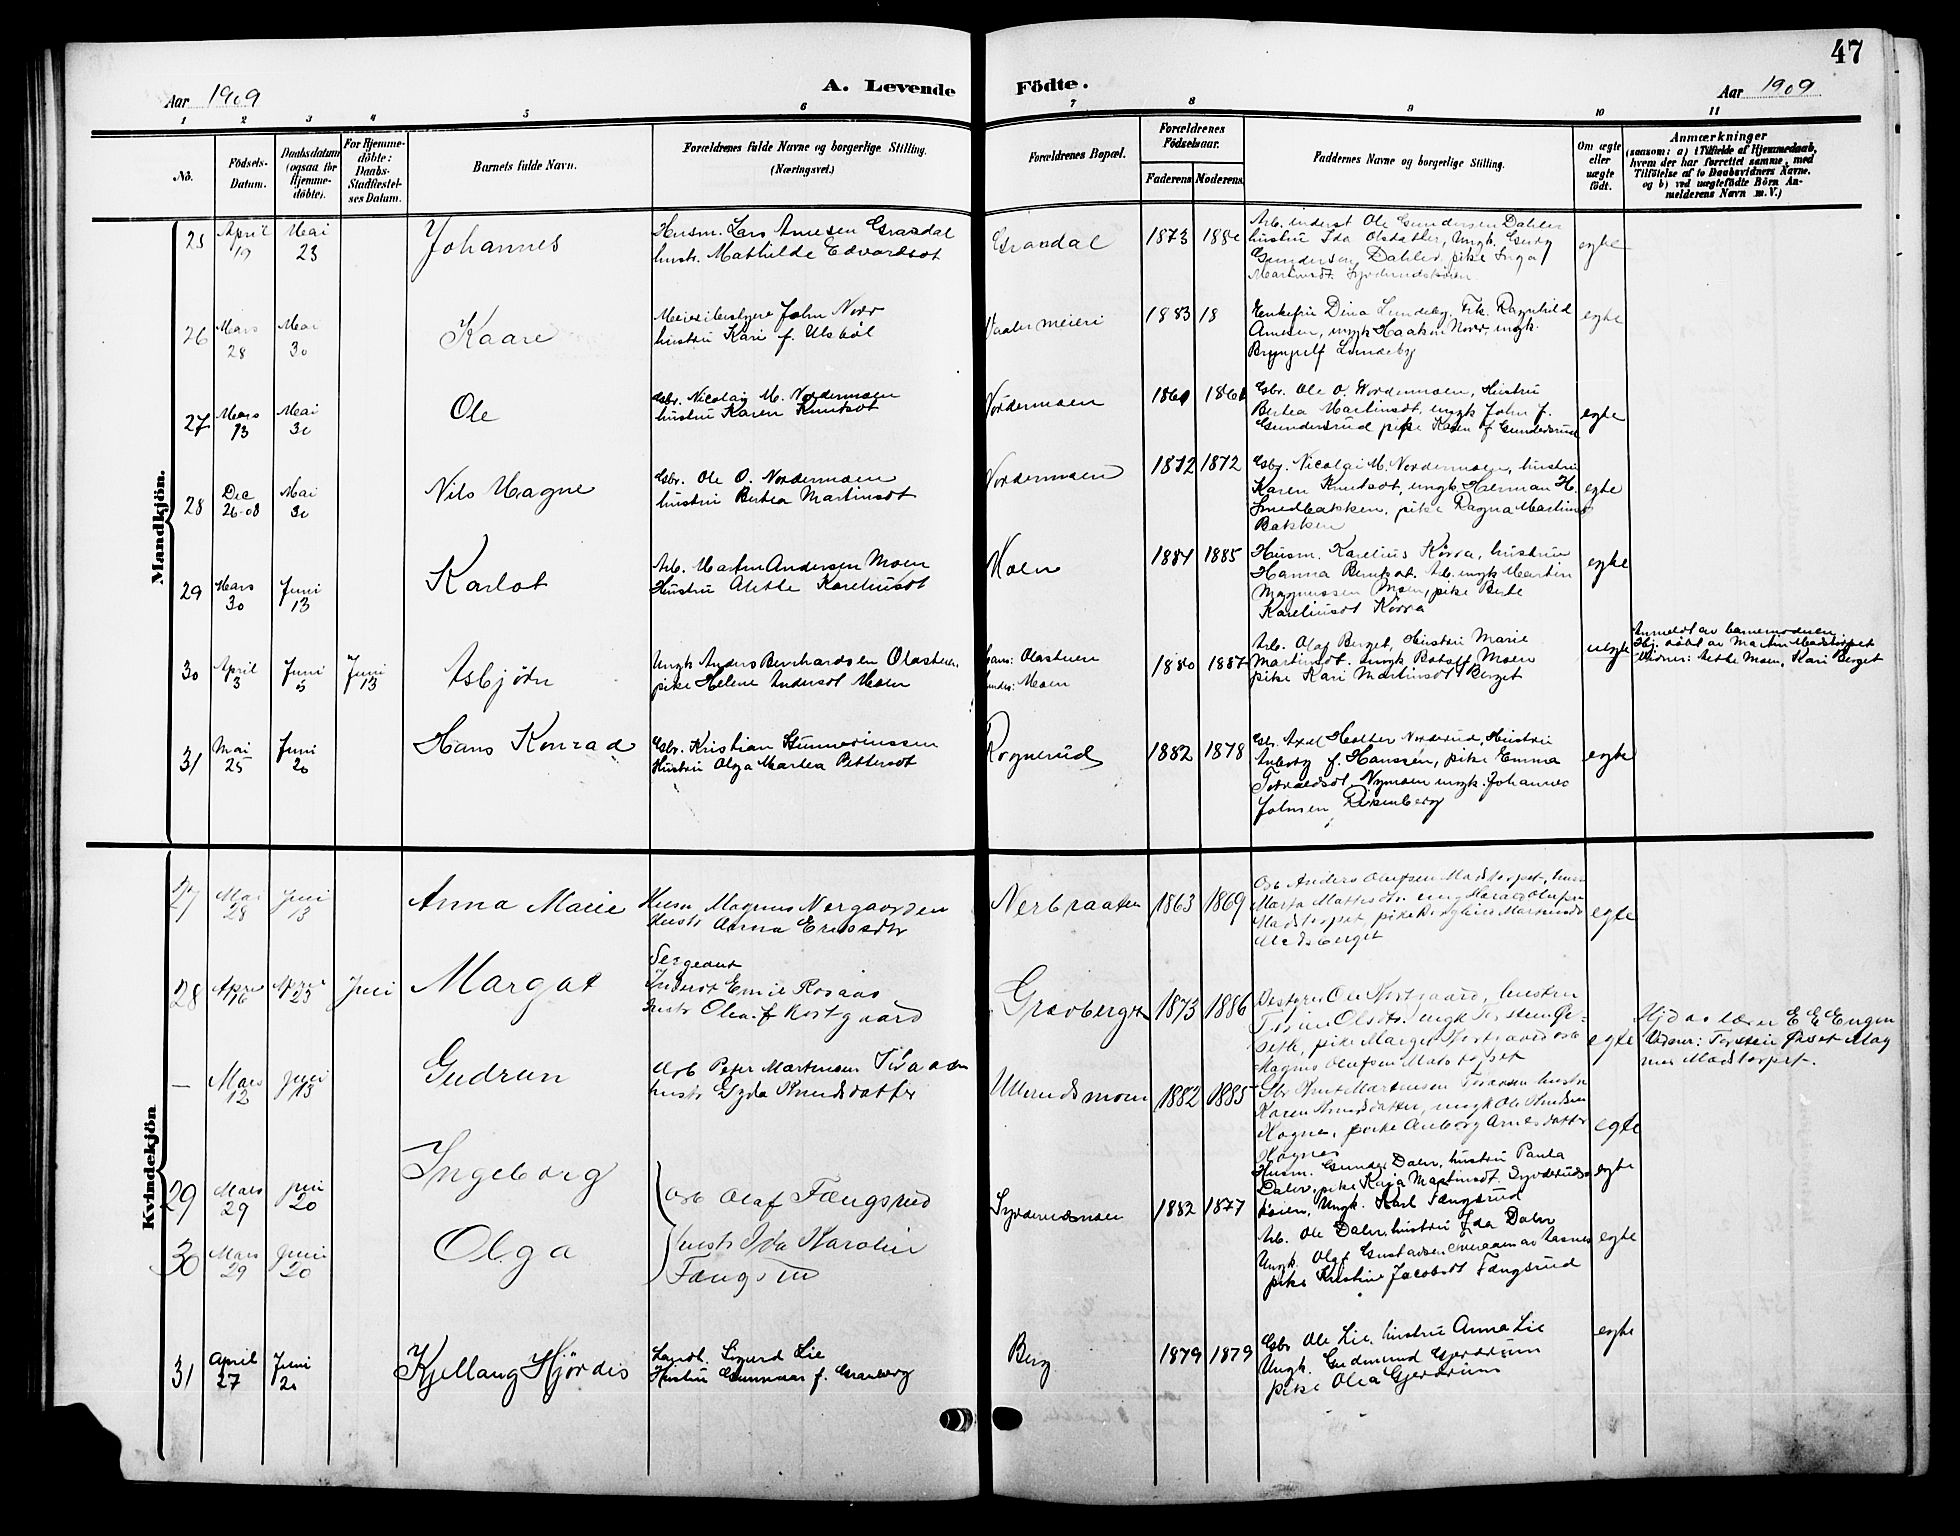 47
Aar 1909
A. Levende
Födte.
Aar 1909
1 2 3 4 5 6 7 8 9 10 11
No.
Födsels-
Datum.
Daabsdatum
(ogsaa for
Hjemme-
döbte).
For Hjemme-
döbte:
Daabs-
Stadfæstel-
ses Datum.
Barnets fulde Navn.
Forældrenes fulde Navne og borgerlige Stilling.
(Næringsvei.)
Forældrenes Bopæl.
Forældrenes
Födselsaar.
Faderens
Moderens
Faddernes Navne og borgerlige Stilling.
Om ægte
eller
uægte
födt.
Anmærkninger
(saasom: a) i Tilfælde af Hjemmedaab,
hvem der har forrettet samme, med
Tilföielse af to Daabsvidners Navne,
og b) ved uægtefödte Börn An-
melderens Navn m. V.)
Mandkjön.
25
April
19
Mai
23
Johannes
Husm. Lars Arnesen Grasdal
hustr. Mathilde Edvardsdt
Grasdal
1873
Arb. inderst Ole Gundersen Dahler
hustru Ida Olsdatter, Ungk.
Gundersen Dahler, pike Inga
egte
26
Mars
28
Mai
30
Kaare
Meieribestyrer John Norr
hustru Kari f. Ulsbøl
Vaaler meieri
1883 18
Enkefru Dina Lundeby, Frk. Ragnhild
Arnesen, ungk Haakon Norr, ungk.
Brynjulf Lundeby
egte
27
Mars
13
Mai
30
Ole
Gbr. Nicolai M. Nordermoen
hustru Karen Knutsdt
Nordermoen
Gbr. Ole O. Nordermoen, Hustru
Bertea Martinsdt, ungk John f.
Gundersrud pike Karen f Gundersrud
egte
28
Dec
26-08
Mai
30
Nils Magne
Gbr. Ole O. Nordermoen
hustru Bertea Martinsdt
Nordermoen
1872 1872
Gbr. Nicolai M. Nordermoen, hustru
Karen Knutsdt, ungk Herman H.
Smedbakken, pike Ragna Martins
Bakken
egte
29
Mars
30
Juni
13
Karlot
Arb. Martin Andersen Moen
Hustru Alette Kareliusdt
Moen
1884 1885
Husm. Karelius Körra, hustru
Hanna Berntsdt. Arb. ungk Martin
Magnussen Moen, pike Berte
Kareliusdt Körra
egte
30
April
3
Juni
5
Juni
13
Asbjörn
Ungk Anders Bernhardsen Olastuen,
pike Helene Andersdt Moen
hans: Olastuen
hendes: Moen
1880 1887
Arb. Olaf Berget, Hustru Marie
Martinsdt. ungk Botolf Moen
pike Kari Martinsdt Berget
uegte
Anmeldt av barnemoderen
Hj. döbt av Martin Madstorpet
Vidner: Mette Moen, Kari Berget
31
Mai
25
Juni
20
Hans Konrad
Gbr. Kristian Gunneriussen
Hustru Olga Martea Pettersdt
Rognerud
1882 1878
Gbr. Axel Holter Norderud, Hustru
Anborg f. Hanssen, pike Emma
Torvaldsdt. Nymoen ungk. Johannes
Johnsen Rikenberg
egte
Kvindekjön
27
Mai
28
Juni
13
Anna Marie
Husm Magnus Nergaarden
Hustr Anna Eriksdtr
Nerbraaten
1863 1869
Arb Anders Olufsen Madstorpet, hustr
Marta Mattesdtr. ung Harald Olufsen
Madstorpet, pike
Madsberget
egte
28
April
16
April
25
Juni
Margat
Sergeant
Inderst Emil Rosaas
hustr Olea f Kostgaard
Gravberget
1873 1886
Ole Kostgaard, hustru
Olsdtr. ungk Torsten
pike Margit Kostgaard
Magnus Olufsen Madstorpet
egte
Hjd av lærer E E Engen
Vidner: Torstein Mag
nus Madstorpet.
—
Mars
12
Juni
13
Gudrun
Arb Peter Martinsen Tisaaen
hustr Gyda Knudsdatter
Ullerudsmoen
1882 1885
Gbr Knut Martinsen hustru
Karen Arnesdatter, ungk Ole Knudsen
Hogne, pike Anborg Arnesdatter
Hognes
egte
29
Mars
29
Juni
20
Ingeborg
Arb Olaf Fængsrud
hustr Ida Karolin
Fængsru
Syverudmoen
1882 1877
Husm. Gunder Daler, hustru Paula
Daler, pike Kaja Martinsdt. Syverud
koien, Ungk. Karl Fængsrud
egte
30
Mars
29
Juni
20
Olga
Arb. Ole Daler, hustru Ida Daler
Ungk. Olaf Gustavsen
pike Kristine Jacobsdt Fængsrud
egte
31
April
27
Juni
20
Kjellaug Hjördis
Landh. Sigurd Lie
Hustru Gunvor f. Granberg
Berg
1879 1879
Gbr Ole Lie, hustru Anna Lie
Ungk. Gudmund Gjerdrum
pike Olea Gjerdrum
egte